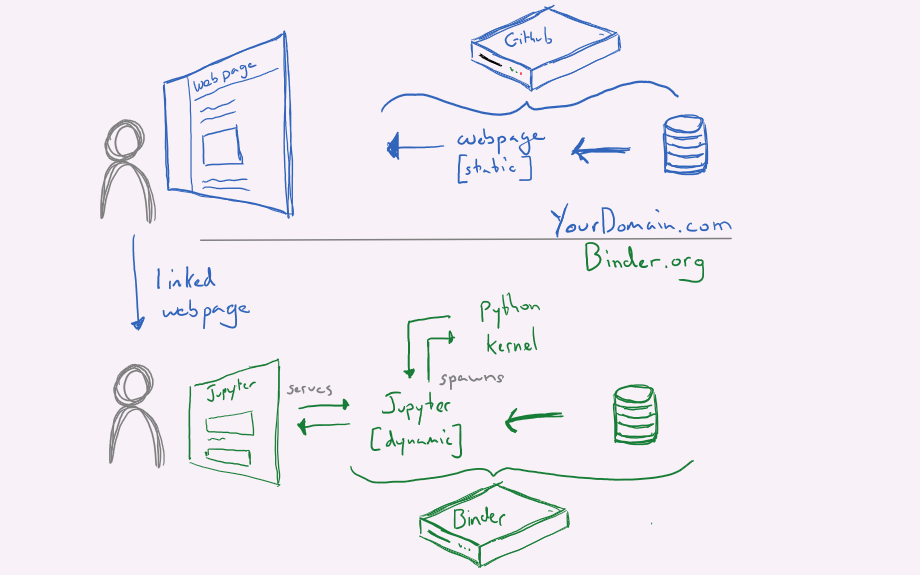 Github
webpage
webpage
[static]
YourDomain.com
Binder.org
linked
webpage
python
kernel
spawns
Jupyter
serves
Jupyter
[dynamic]
Binder